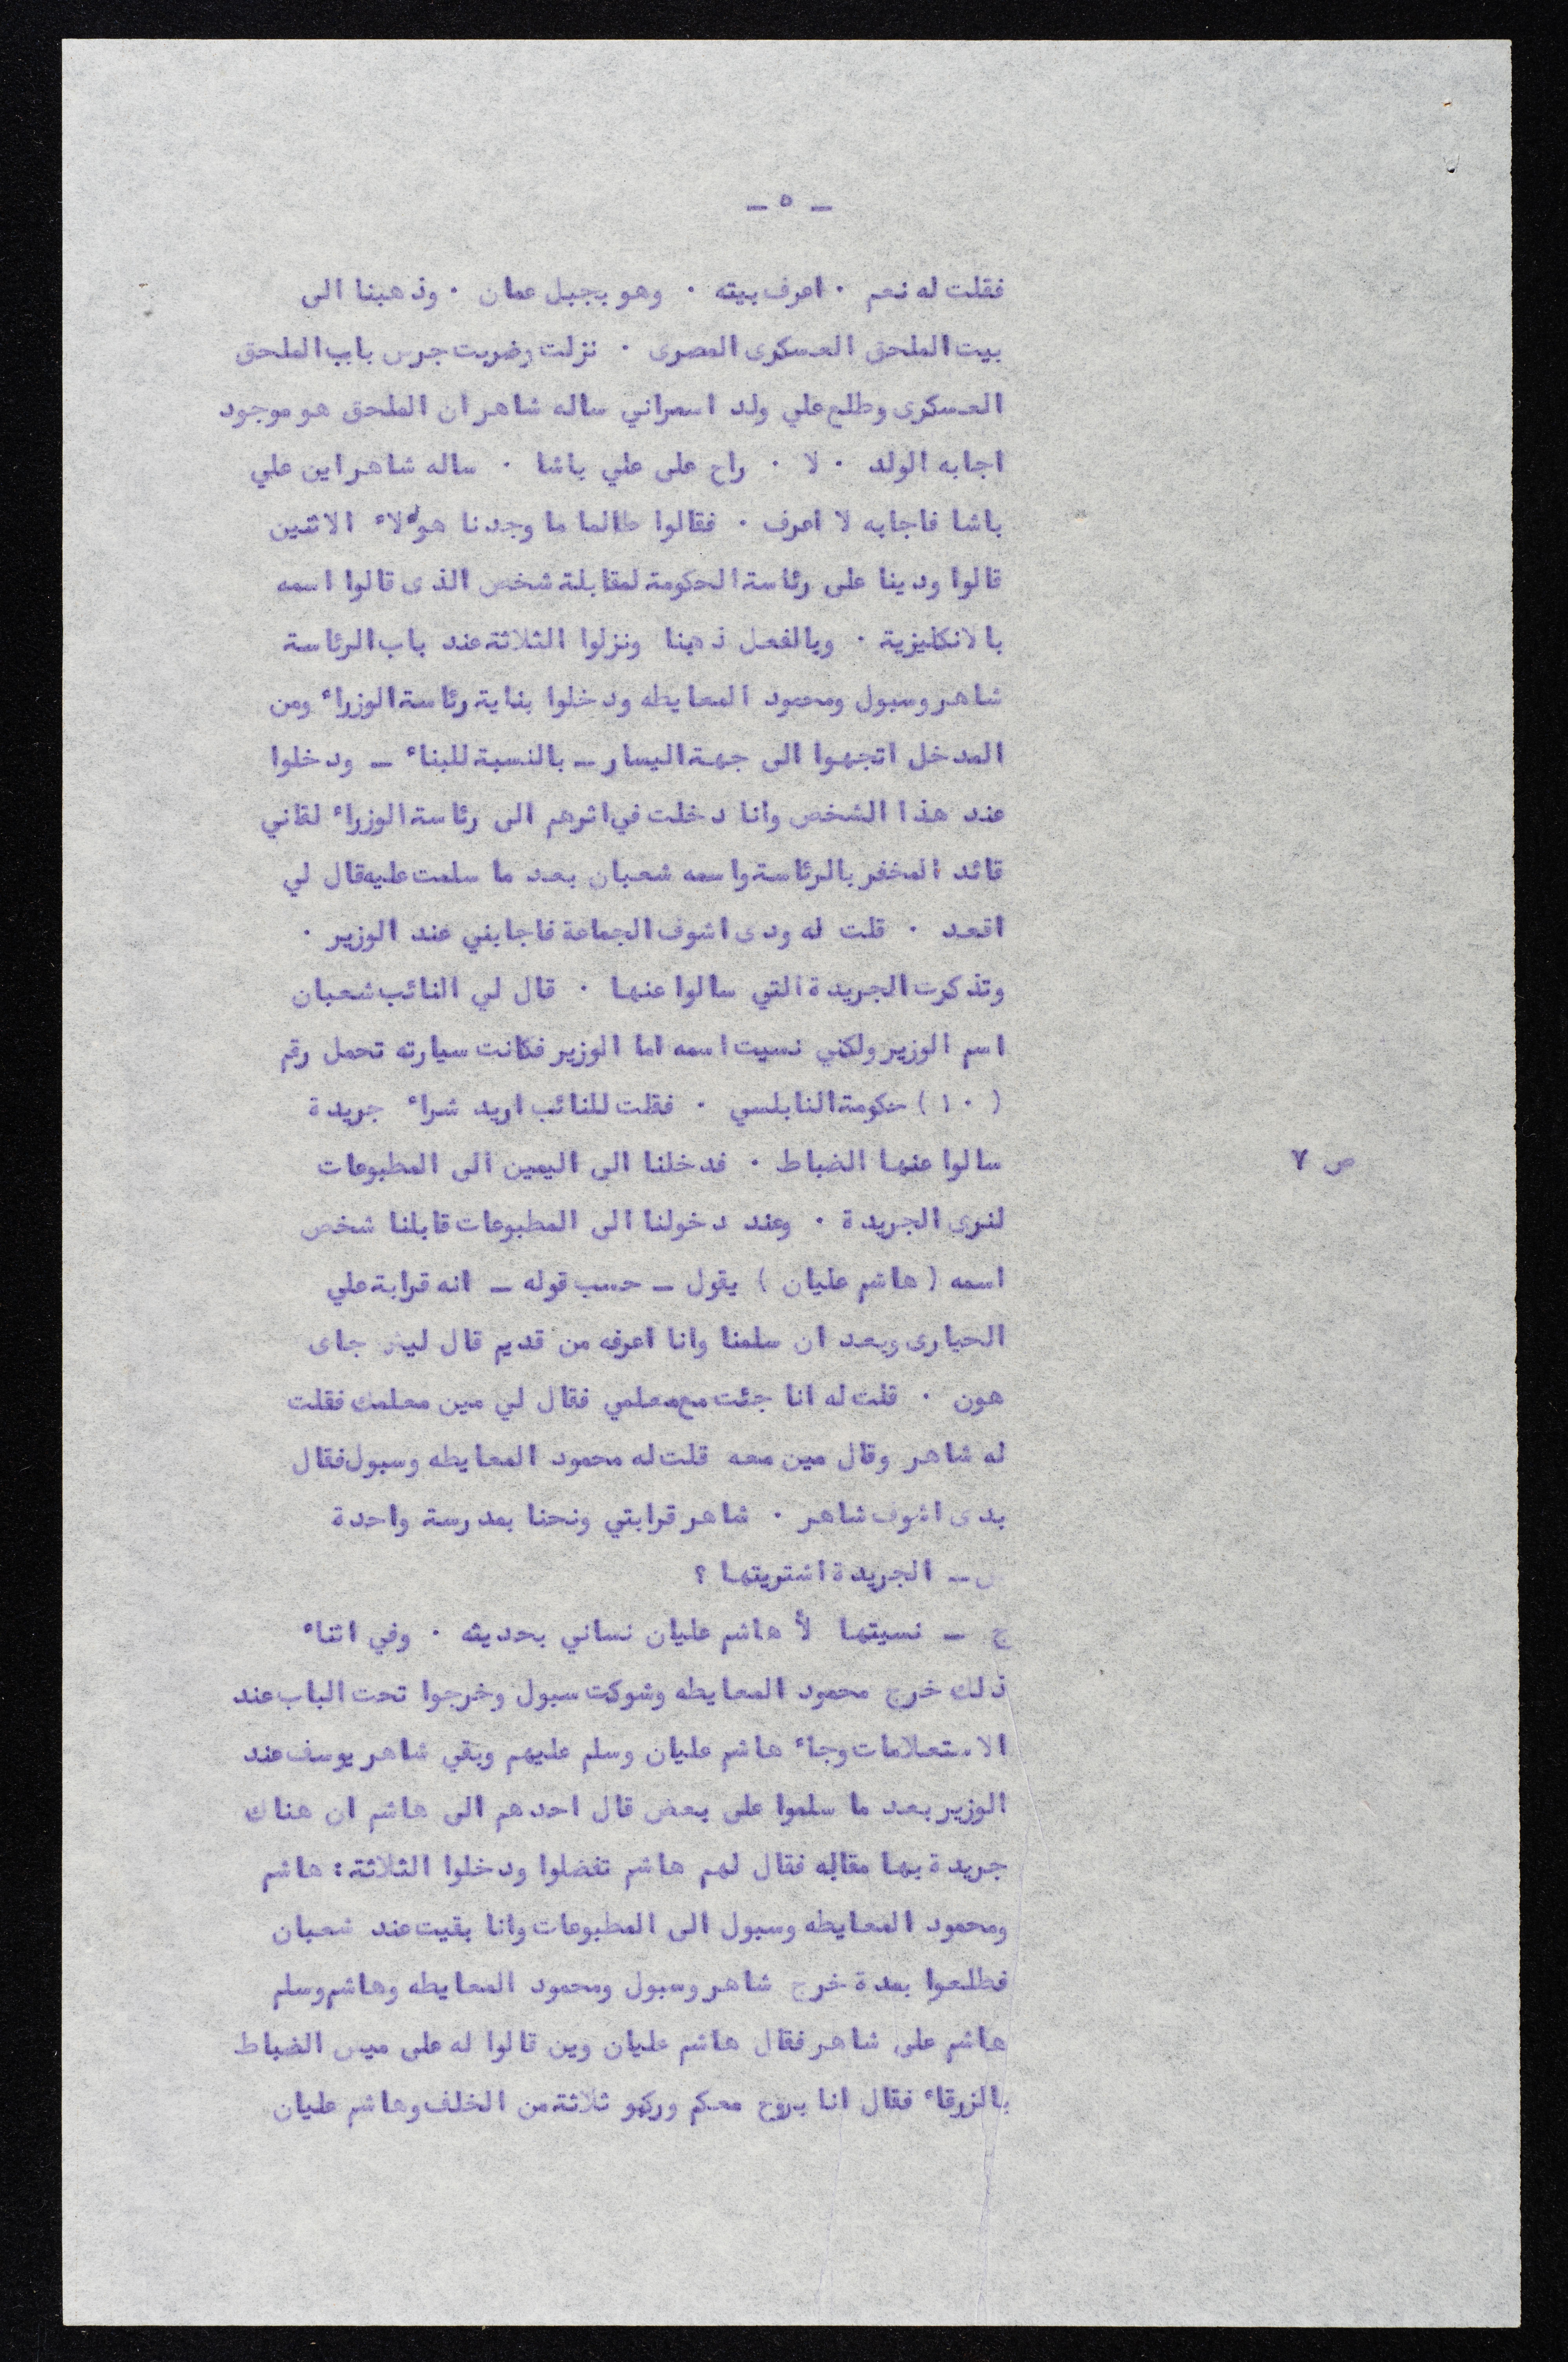 ـ ٥ ـ
فقلت له نعم ٠ اعرف بيته ٠ وهو بجبل عمان ٠ وذهبنا الى
بيت الملحق العسكرى المصرى ٠ نزلت وضربت جرس باب الملحق
العسكرى وطلع علي ولد اسمراني ساله شاهر ان الملحق هو موجود
اجابه الولد ٠ لا ٠ راح على علي باشا ٠ ساله شاهر اين علي
باشا فاجابه لا اعرف ٠ فقالوا طالما ما وجدنا هولاء الاثنين
قالوا ودينا على رئاسة الحكومة لمقابلة شخص الذى قالوا اسمه
بالانكليزية ٠ وبالفعل ذهبنا ونزلوا الثلاثة عند باب الرئاسة
شاهر وسبول ومحمود المعايطه ودخلوا بناية رئاسة الوزراء ومن
المدخل اتجهوا الى جهة اليسار ـ بالنسبة للبناء ـ ودخلوا
عند هذا الشخص وانا دخلت في اثرهم الى رئاسة الوزراء لقاني
قائد المخفر بالرئاسة واسمه شعبان بعد ما سلمت عليه قال لي
اقعد ٠ قلت له ودى اشوف الجماعة فاجابني عند الوزير ٠
وتذكرت الجريدة التي سالوا عنها ٠ قال لي النائب شعبان
اسم الوزير ولكني نسيت اسمه اما الوزير فكانت سيارته تحمل رقم
( ١٠ ) حكومة النابلسي ٠ فقلت للنائب اريد شراء جريدة
سالوا عنها الضباط ٠ فدخلنا الى اليمين الى المطبوعات
ص ٧
لنرى الجريدة ٠ وعند دخولنا الى المطبوعات قابلنا شخص
اسمه ( هاشم عليان ) يقول ـ حسب قوله ـ انه قرابة علي
الحيارى وبعد ان سلمنا وانا اعرفه من قديم قال ليش جاى
هون ٠ قلت له انا جئت مع معلمي فقال لي مين معلمك فقلت
له شاهر وقال مين معه قلت له محمود المعايطه وسبول فقال
بدى اشوف شاهر ٠ شاهر قرابتي ونحنا بمدرسة واحدة
س ـ الجريدة اشتريتها ؟
ج ـ نسيتها لأ هاشم عليان نساني بحديثه ٠ وفي اثناء
ذلك خرج محمود المعايطه وشوكت سبول وخرجوا تحت الباب عند
الاستعلامات وجاء هاشم عليان وسلم عليهم وبقي شاهر يوسف عند
الوزير بعد ما سلموا على بعض قال احدهم الى هاشم ان هناك
جريدة بها مقاله فقال لهم هاشم تفضلوا ودخلوا الثلاثة : هاشم
ومحمود المعايطه وسبول الى المطبوعات وانا بقيت عند شعبان
فطلعوا بمدة خرج شاهر وسبول ومحمود المعايطه وهاشم وسلم
هاشم على شاهر فقال هاشم عليان وين قالوا له على ميس الضباط
بالزرقاء فقال انا بروح معكم وركبو ثلاثة من الخلف وهاشم عليان